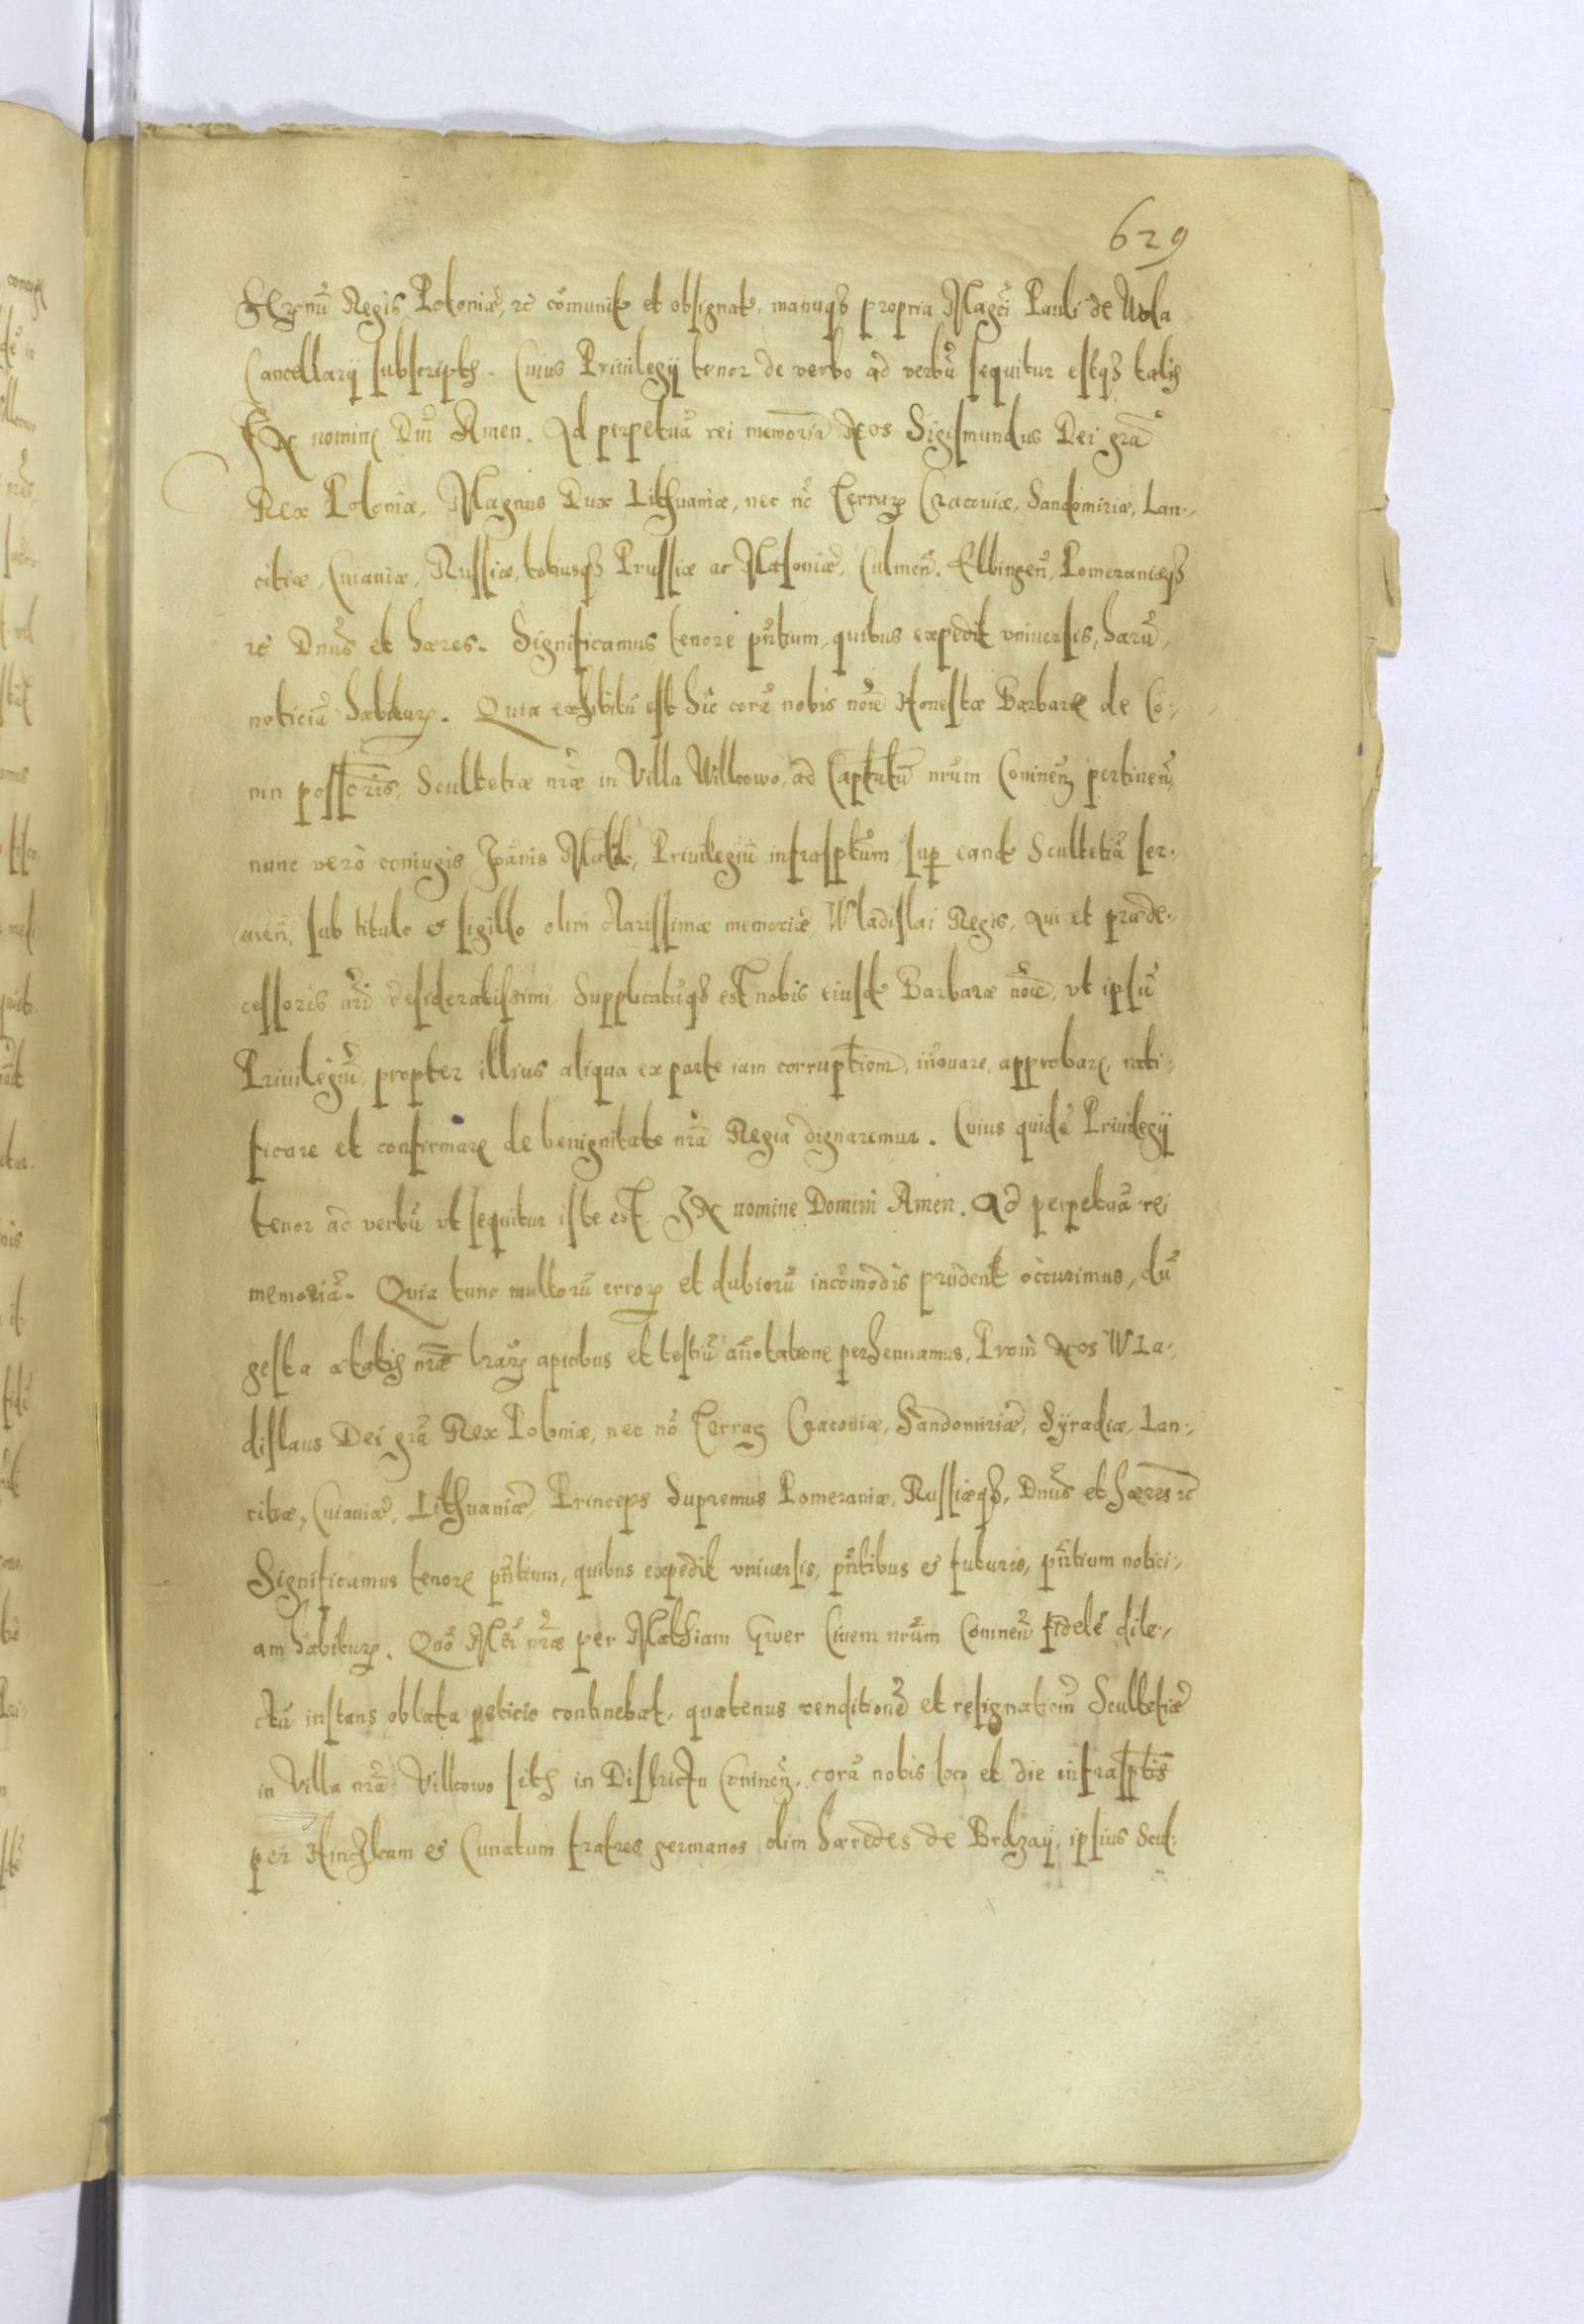 629
Regis Poloniæ, rc̃ com̃unit et obsignat, manuqȝ propria Magci Pauli de Wola
Cancellarij subscriptȩ. Cuius Priuilegij tenor de verbo ad verbũ sequitur estqȝ talis
In nomine Dñi Amen. Ad perpetuã rei memoriã Nos Sigismundus Dei grã
Rex Poloniæ, Magnus Dux Lithuaniæ, nec nõ Terraꝝ Cracouiæ, Sandomiriæ, Lan-,
citiæ, Cuiauiæ, Russiæ, totiusqȝ Prussiæ ac Masouiæ, Culmeñ. Elbingeñ, Pomeraniæqȝ
rc̃ Dnũs et hæres. Significamus tenore pñtium, quibus expedit vniuersis, harũ,
noticiã habituꝝ. Quia exhibitũ est hic corã nobis noĩe Honestæ Barbaræ de Co-,
nin possoris, Scultetiæ nræ in Villa Willcowo, ad Captũtũ nrũm Coninenȝ pertineñ,
nunc verò coniugis Joãnis, Priuilegiũ infrasptũm sup eand Scultetiã ser-
uieñ, sub titulo & sigillo olim clarissimæ memoriæ, Wladislai Regis, qui et præde-
cessoris nrĩ desideratissimi Supplicatũqȝ est nobis eiusd Barbaræ noĩe, vt ipsũ
Priuilegiũ, propter illius aliqua ex parte iam corruptiom̃, iñouare, approbare, rati-
ficare et confirmare de benignitate nrã Regia dignaremur. Cuius quidẽ Priuilegij
tenor ad verbũ vt sequitur iste est In nomine Domini Amen. Ad perpetuã rei
memoriã. Quia tunc multorũ erroꝝ et dubiorũ incõmodis prudent occurimus, dũ
gesta ætatis nræ lraꝝ apicibus et testiũ añotatione perhennamus, Proin Nos Wla-,
dislaus Dei grã Rex Poloniæ, nec nõ Terraꝝ Cracouiæ, Sandomiriæ, Syradiæ, Lan-,
citiæ, Cuiauiæ, Lithuaniæ, Princeps Supremus Pomeraniæ, Russiæqȝ, Dnũs et hæres rc̃
Significamus tenore pñtium, quibus expedit vniuersis, pñtibus & futuris, pñtium notici-,
am habituꝝ. Quõ Mti nræ per Mathiam Gwer Ciuem nrũm Conineñ fidelẽ dile-,
ctũ instans oblata peticio continebat, quatenus venditionẽ et resignatiom̃ Scultetiæ
in Villa nrã Villcowo sitȩ in Districtu Coninenȝ, corã nobis loco et die infrasptis
per & Cunatum fratres germanos olim hæredes de Brdzay, ipsius Scul-